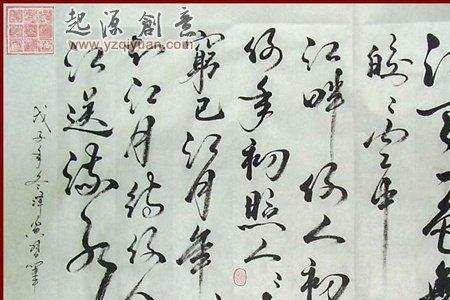 起源創意
www.yzqiyuan.com
江天一色無
皎〻空中
江畔何人初
何年初照人〻
窮已江月年
知江月待何人
江送流水
戊子年冬